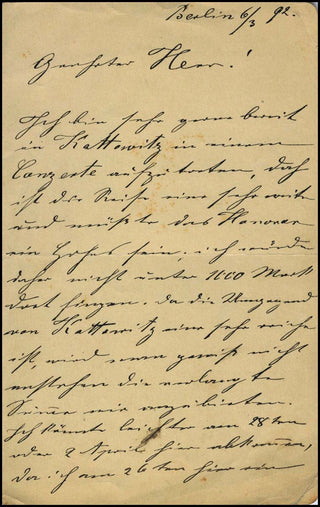 Berlin 6/3 92.
Geehrter Herr!
Ich bin sehr gerne bereit
in Kattowitz in einem
Conzerte aufzutreten, doch
ist die Reise eine sehr weite
und müßte das Honorar
ein hohes sein; ich würde
daher nicht unter 1000 Mark
dort singen. Da die Umgegend
von Kattowitz eine sehr reiche
ist, wird man gewiß nicht
anstehen die verlangte
Summe mir anzubieten.
Ich könnte leichter am 28ten
oder 2 April hier abkommen,
da ich am 26ten hier ein